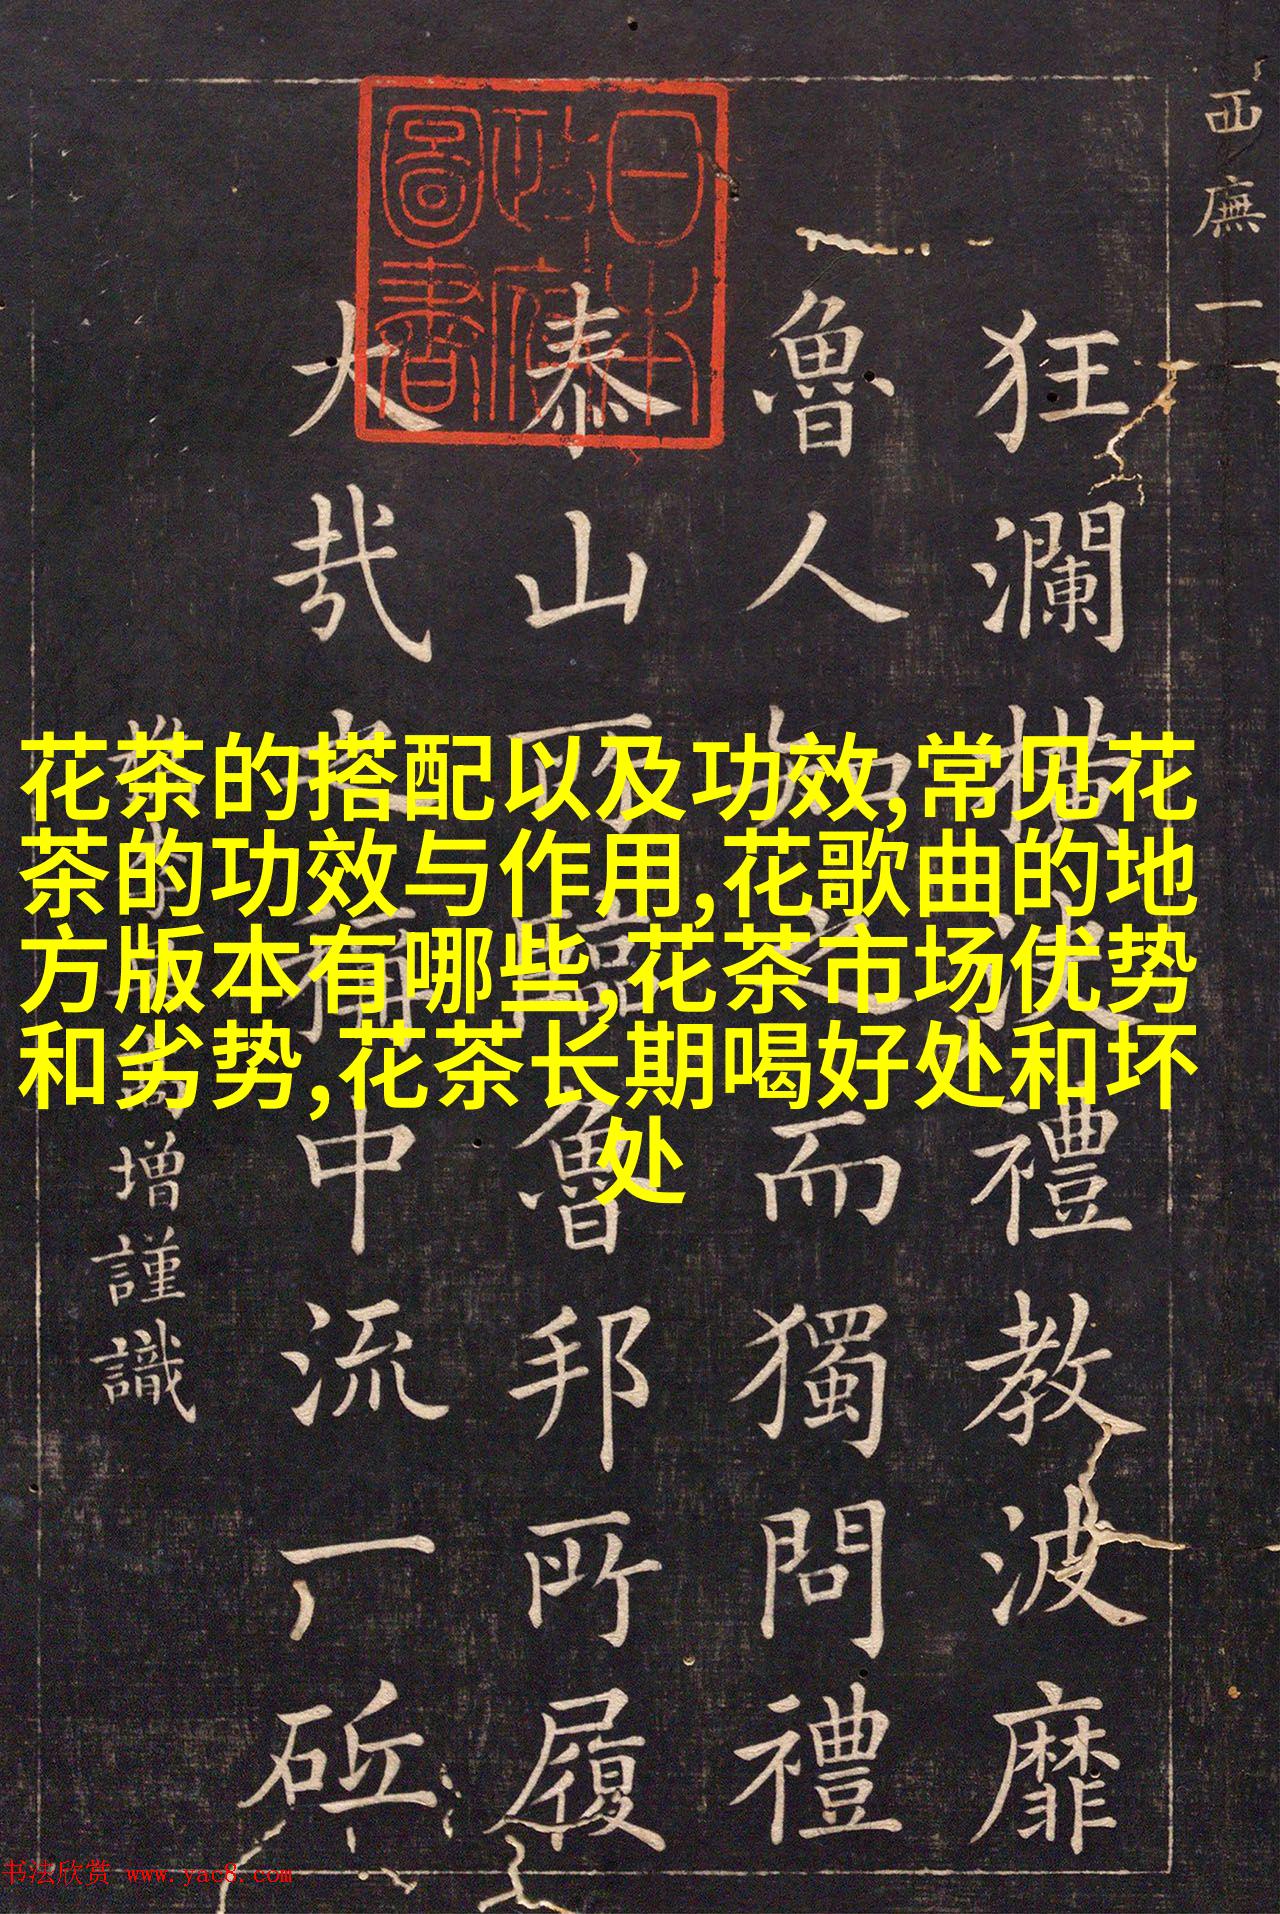 西廡一
狂瀾橫禮教波靡
魯人知之而獨問禮
泰山所臨魯邦所履
大哉中流一砥
增謹識
日本
政府
圖書
花茶的搭配以及功效,常见花
茶的功效与作用,花歌曲的地
方版本有哪些,花茶市场优势
和劣势,花茶长期喝好处和坏
处
书法欣赏 www.yac8.com